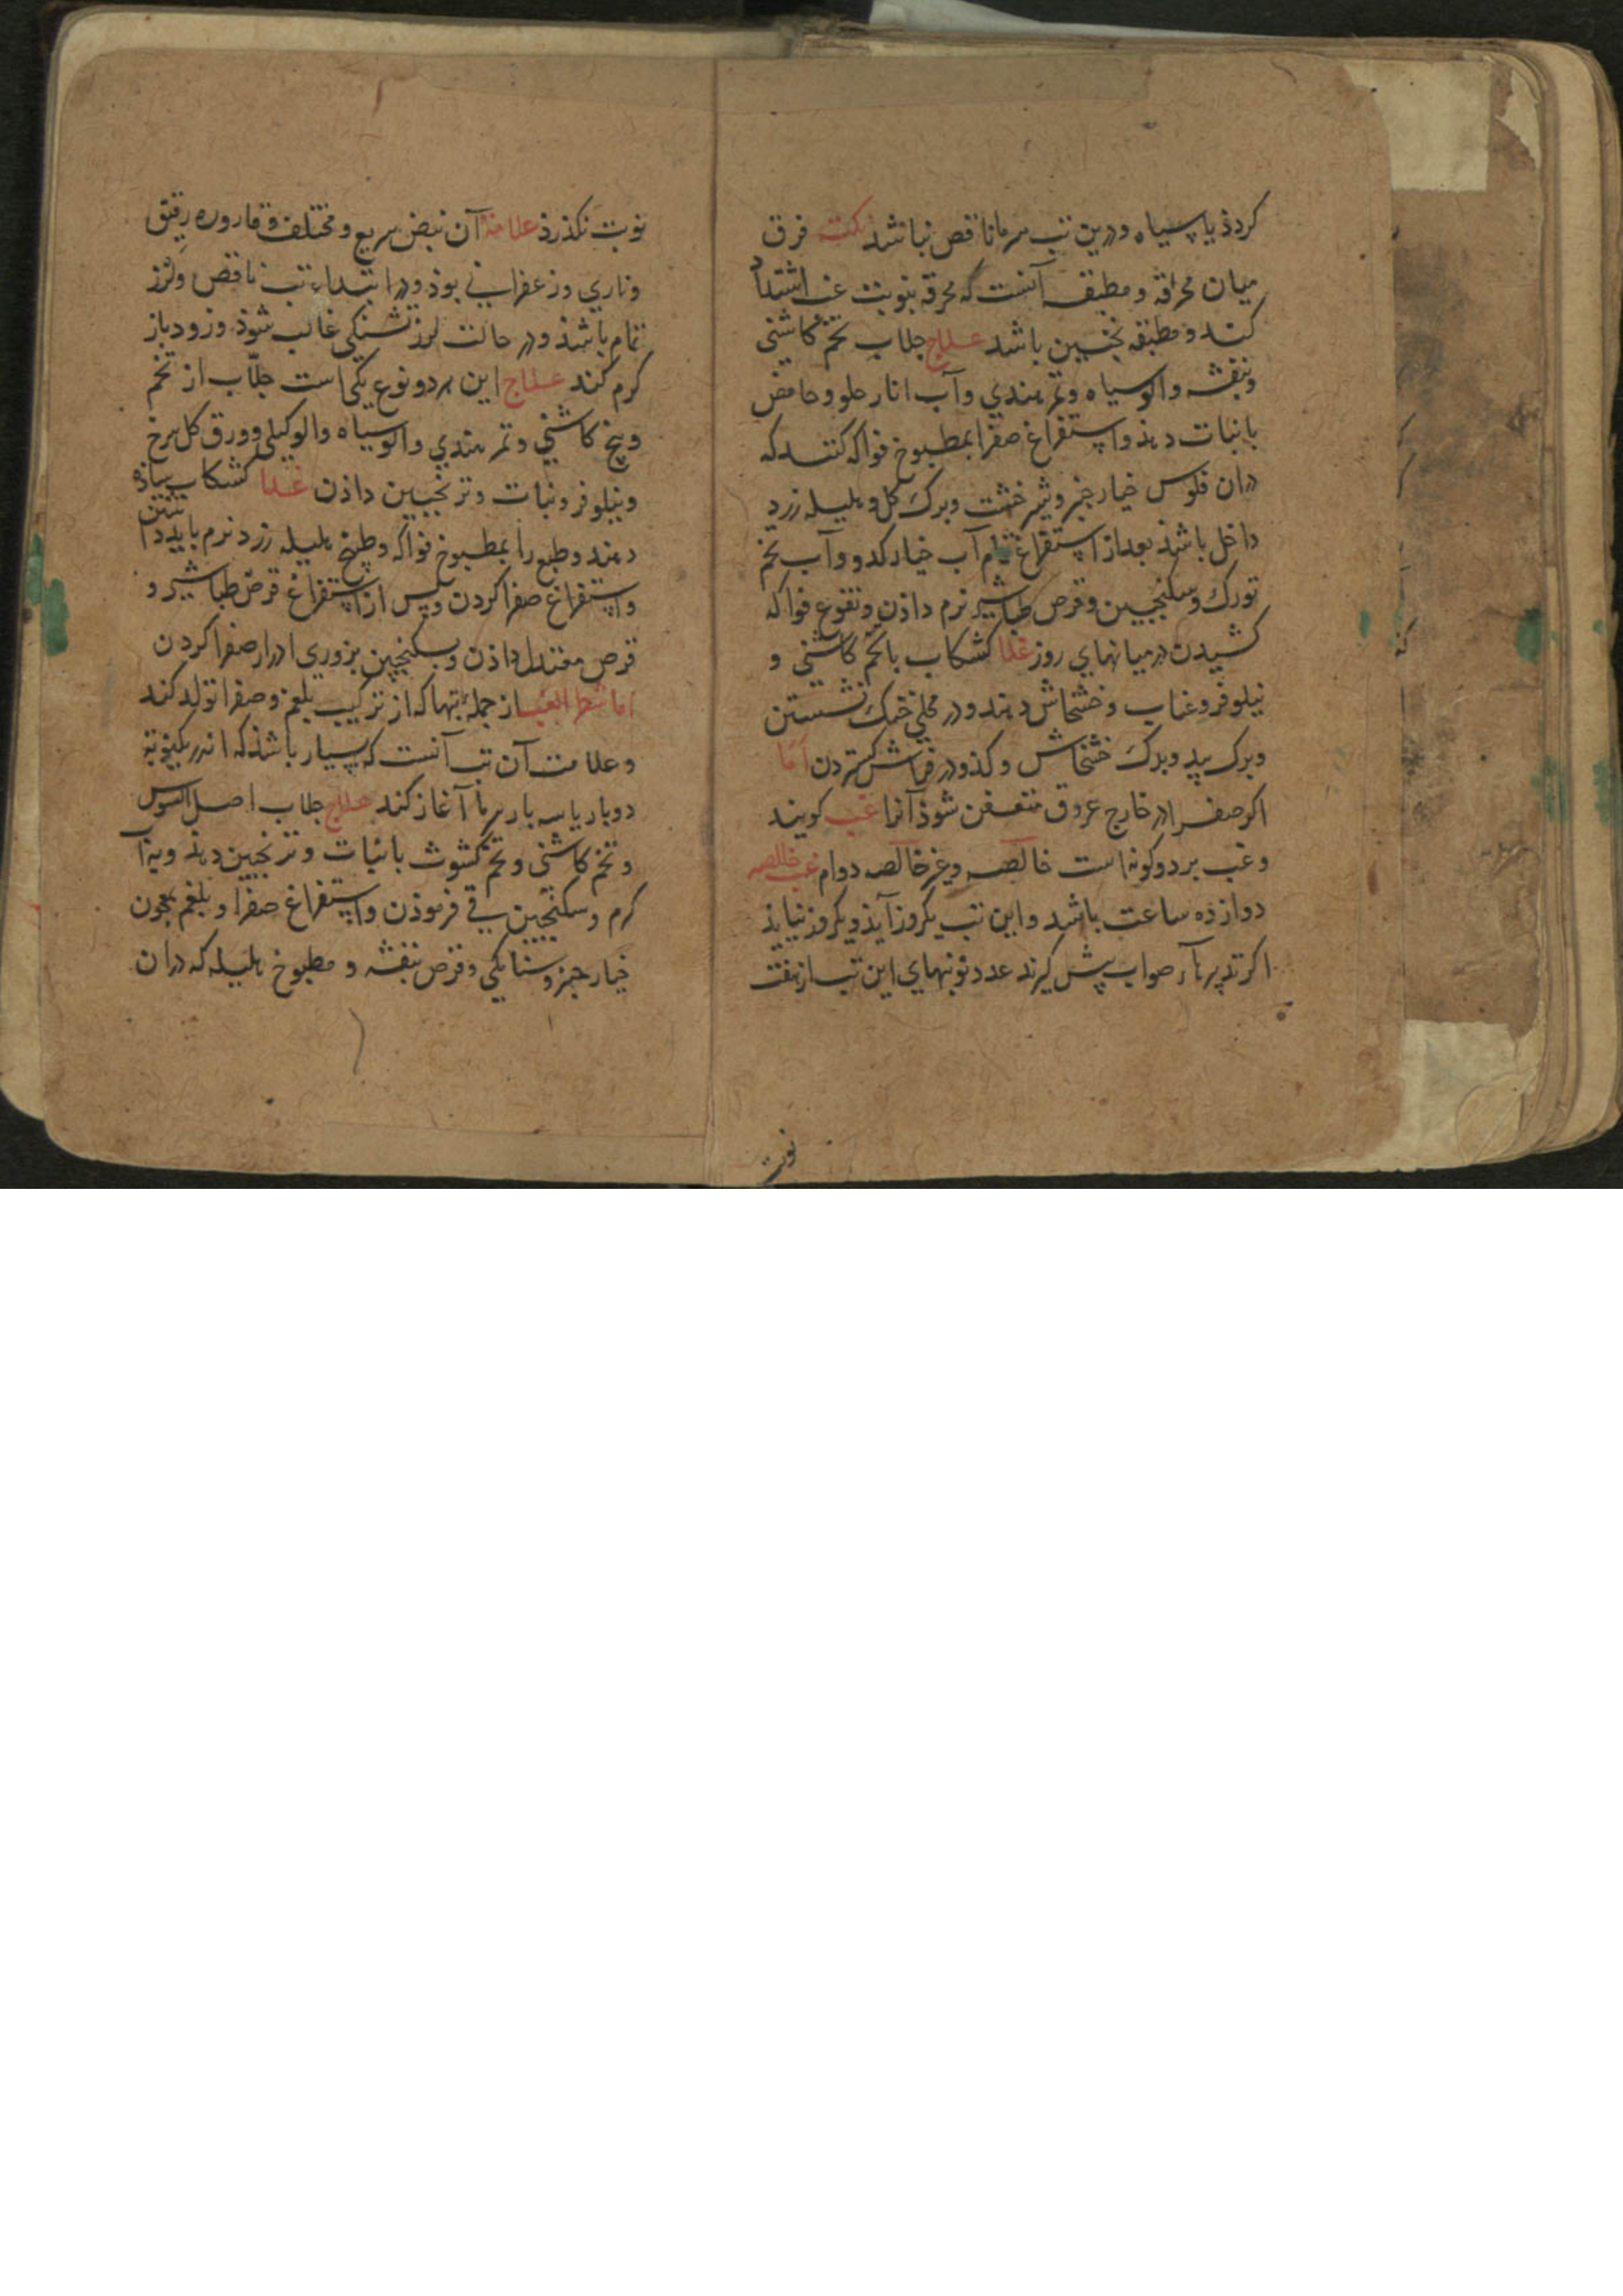 کردذ یا سیاه و درین تب سرما ناقص نباشد نکته فرق
میان محرقه و مطبقه آنست که محرقه بنوبت غب اشتداد
کند و مطبقه نچنین باشد علاج جلاب تخم کاشنی
وبنفشه والوسیاه وتمر هندی وآب انار حلو وحامض
بانبات دهذ واستفراغ صفرا بمطبوخ فواکه کنند که
دران فلوس خیار جنبر وشیر خشت وبرک کل و هلیله زرد
داخل باشذ بعد از استفراغ تمام آب خیار کدو وآب تخم
تورک وسکنجبین وقرص طباشیر نرم داذن ونقوع فواکه
کشیدن در میانهای روز غذا کشکاب باتخم کاشنی و
نیلوفر وعناب وخشخاش دهند ودر محلی خنک نشستن
وبرک بید وبرک خشخاش وکذو در فراش کستردن اما
اکر صفرا در خارج عروق متعفن شوذ آنرا غب کویند
وغب بر دو کونه است خالصه وغیر خالصه دوام غب خالصه
دوازده ساعت باشد واین تب یکروز آیذ ویکروز نیایذ
اکر تدبیر بآر صواب پیش کیرند عدد نوبتهای این تب از هفت
نوبت
نوبت نکذرذ علامة آن نبض سریع و مختلف وقاروره رقیق
وناری وزعفرانی بوذ ودر ابتداء تب ناقض ولرز
تمام باشذ ودر حالت لرز تشنکی غالب شوذ وزود باز
کرم کند علاج این هر دو نوع یکی است جلّاب از تخم
وبیخ کاشنی وتمر هندی والوسیاه والوکیلی و ورق کل سرخ
ونیلوفر ونبات وترنجبین داذن غذا کشکاب ساذه
دهند وطبع را بمطبوخ فواکه وطبیخ هلیله زرد نرم باید داشتن
واستفراغ صفرا کردن وپس از استفراغ قرص طباشیر و
قرص معتدل داذن وسکنجبین بزوری ادرار صفرا کردن
اما شطر الغب از جملهٔ تبها که از ترکیب بلغم وصفرا تولد کند
وعلامت آن تب آنست که بسیار باشذ که اندر یکنوبة
دوبار یا سه بار سرما آغاز کند علاج جلاب اصل السوس
وتخم کاشنی وتخم کشوث بانبات وترنجبین دهذ وبه آب
کرم وسکنجبین قی فرموذن واستفراغ صفرا وبلغم بمعجون
خیار جنبر وسنا مکی وقرص بنفشه و مطبوخ هلیله که دران